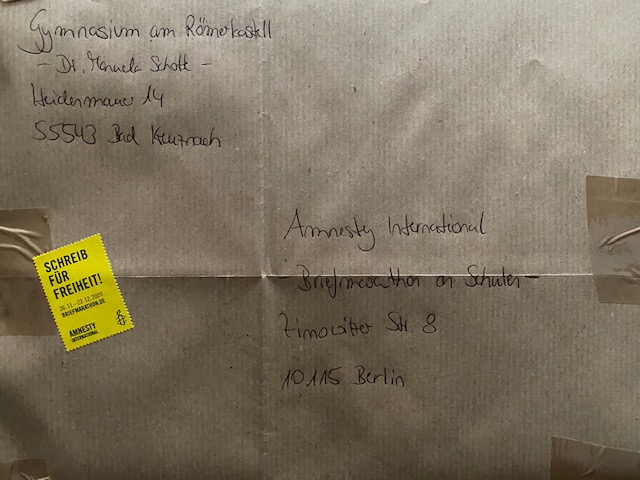 Gymnasium am Römerkastell
- Dr. Manuela Schott -
Heidenmauer 14
55543 Bad Kreuznach
Amnesty International
- Briefmarathon an Schulen -
Zinnowitzer Str. 8
10115 Berlin
SCHREIB
FÜR
FREIHEIT!
26.11.–23.12.2020
BRIEFMARATHON.DE
AMNESTY
INTERNATIONAL